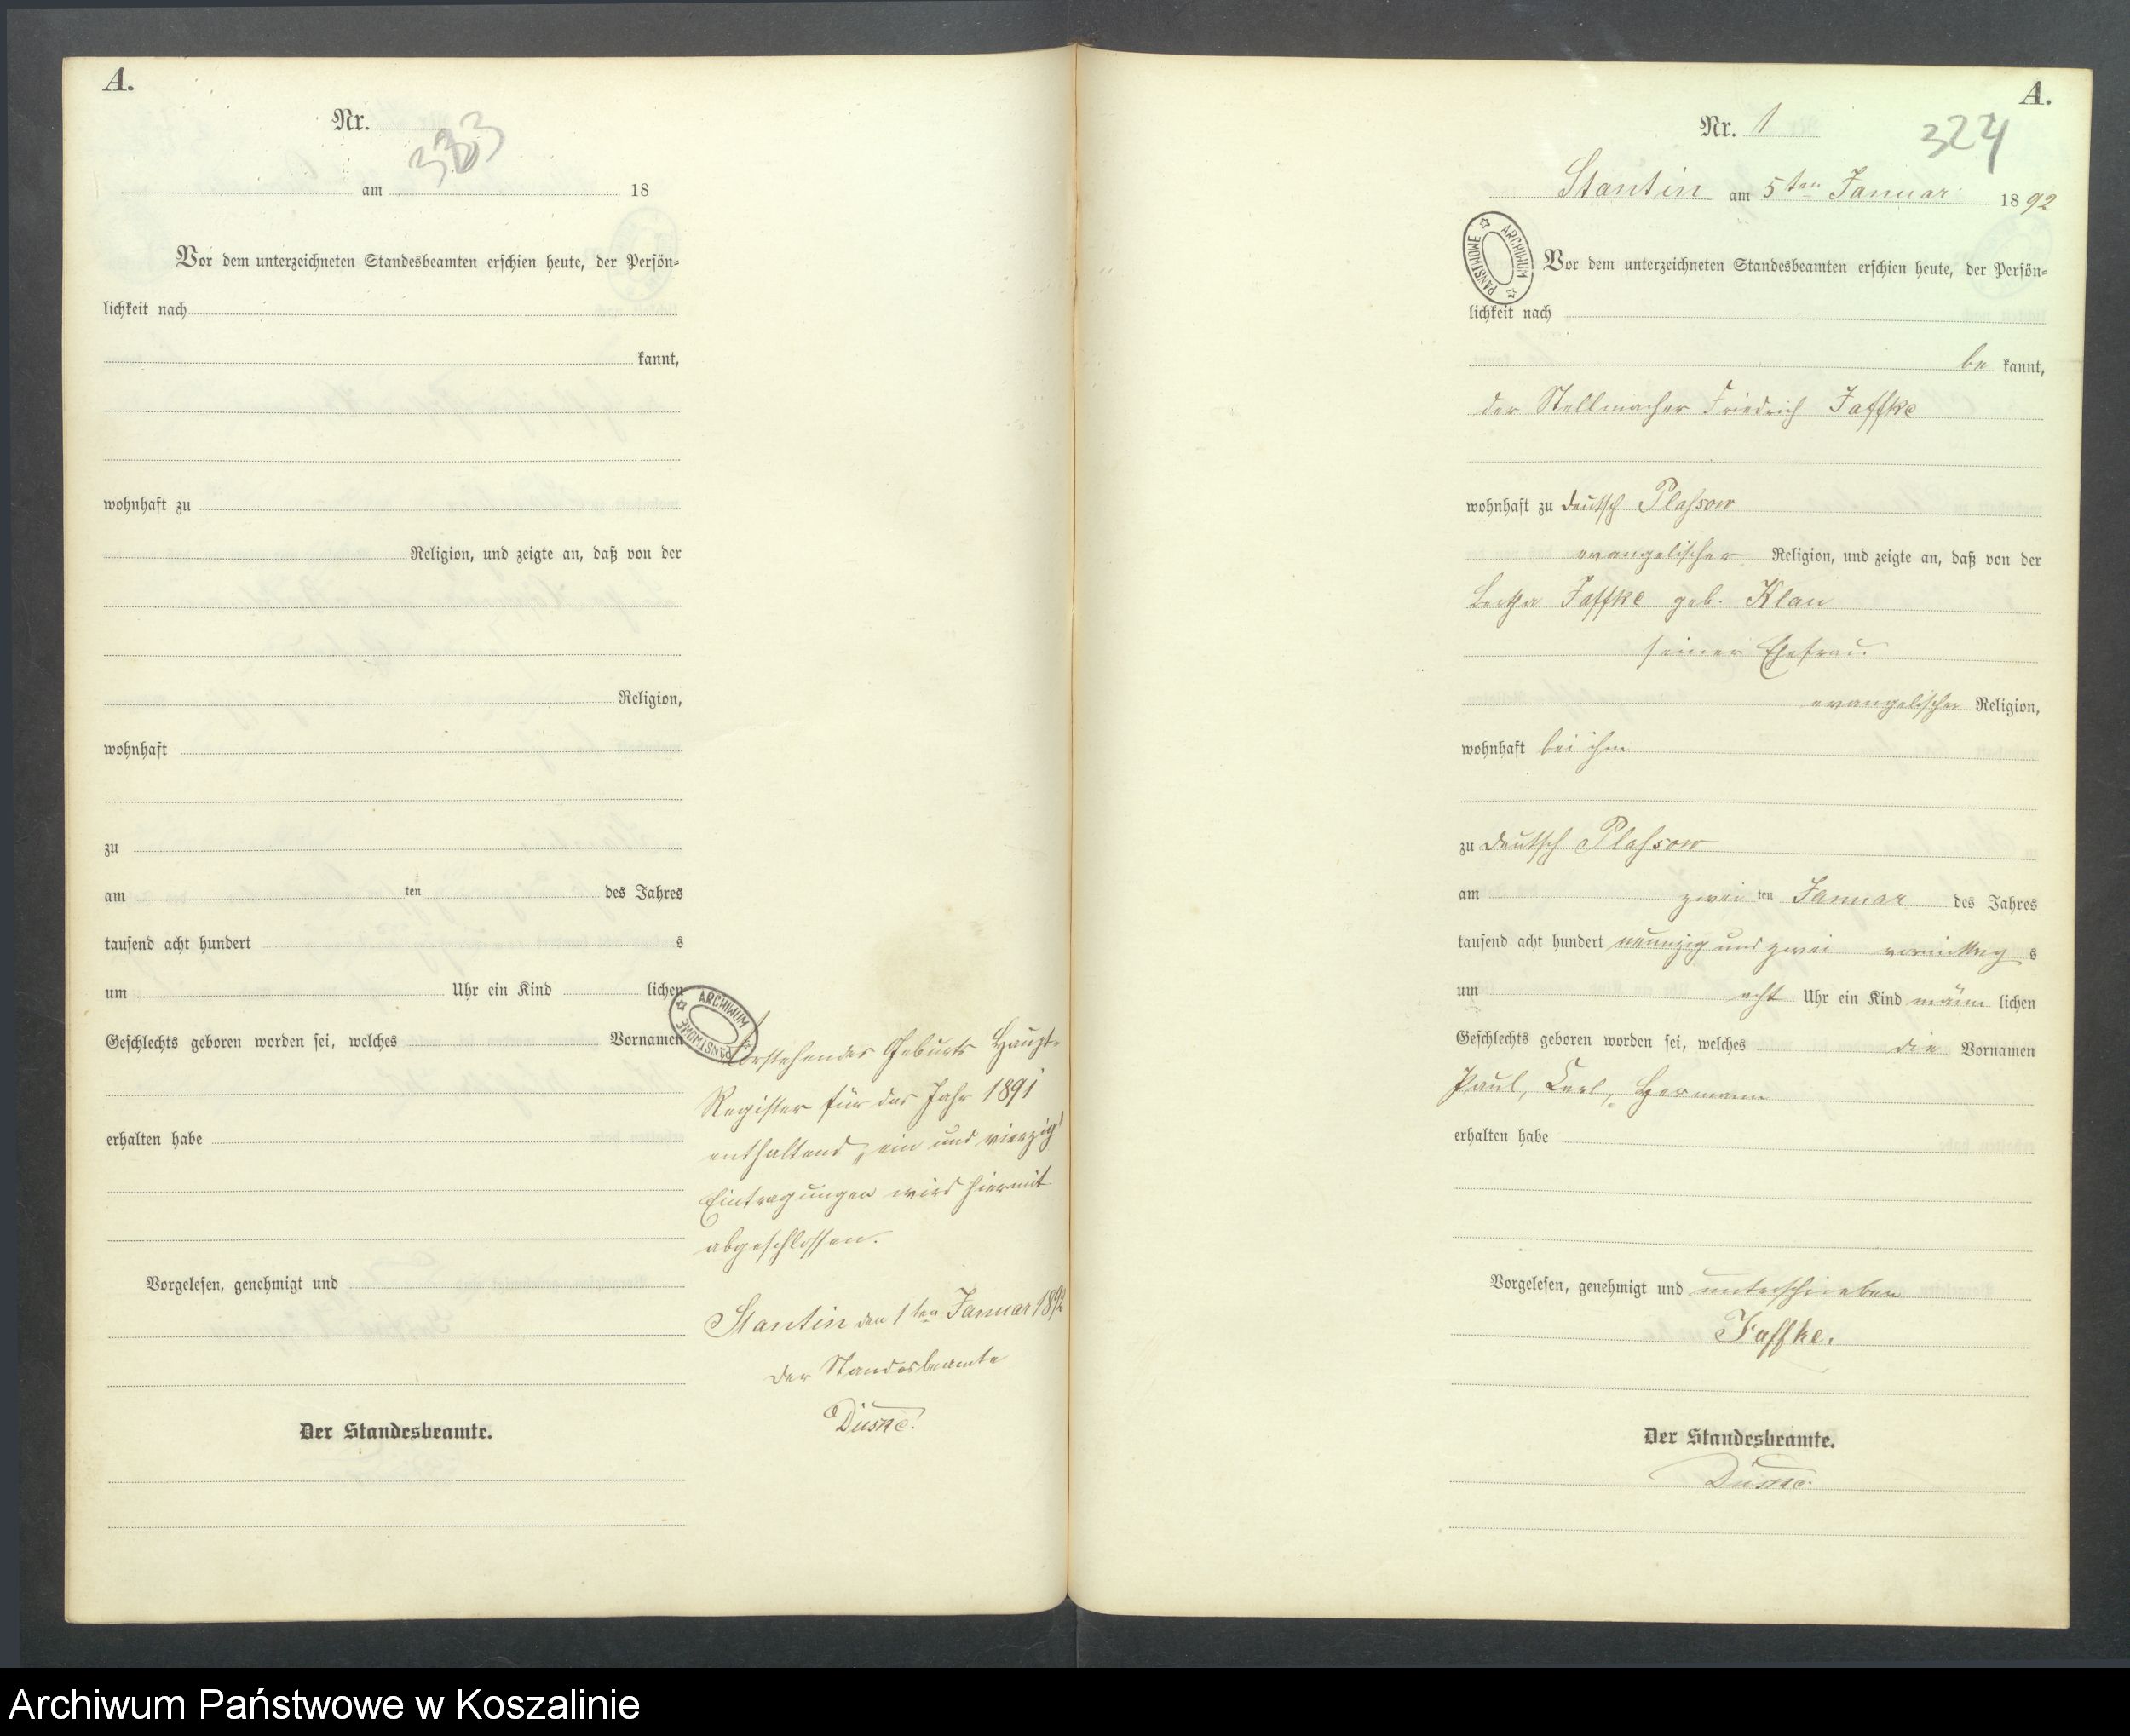 A.
Nr.
333
am 18
Vor dem unterzeichneten Standesbeamten erschien heute, der Persön=
lichkeit nach
kannt,
wohnhaft zu
Religion, und zeigte an, daß von der
Religion,
wohnhaft
zu
am ten des Jahres
tausend acht hundert s
um Uhr ein Kind lichen
Geschlechts geboren worden sei, welches Vornamen
erhalten habe
Vorgelesen, genehmigt und
Der Standesbeamte.
ARCHIWUM PAŃSTWOWE
Vorstehendes Geburts Haupt-
Register für das Jahr 1891
enthaltend „ein und vierzig"
Eintragungen wird hiermit
abgeschlossen.
Stantin den 1ten Januar 1892
Der Standesbeamte
A.
Nr. 1
324
Stantin am 5ten Januar 1892
ARCHIWUM PAŃSTWOWE
Vor dem unterzeichneten Standesbeamten erschien heute, der Persön=
lichkeit nach
be kannt,
der Stellmacher Friedrich Jaffke
wohnhaft zu deutsch Plassow
evangelischer Religion, und zeigte an, daß von der
Bertha Jaffke geb. Klau
seiner Ehefrau.
evangelischer Religion,
wohnhaft bei ihm
zu deutsch Plassow
am zwei ten Januar des Jahres
tausend acht hundert neunzig und zwei vormittag s
um acht Uhr ein Kind männ lichen
Geschlechts geboren worden sei, welches die Vornamen
Paul, Carl, Hermann
erhalten habe
Vorgelesen, genehmigt und unterschrieben
Jaffke.
Der Standesbeamte.
Archiwum Państwowe w Koszalinie